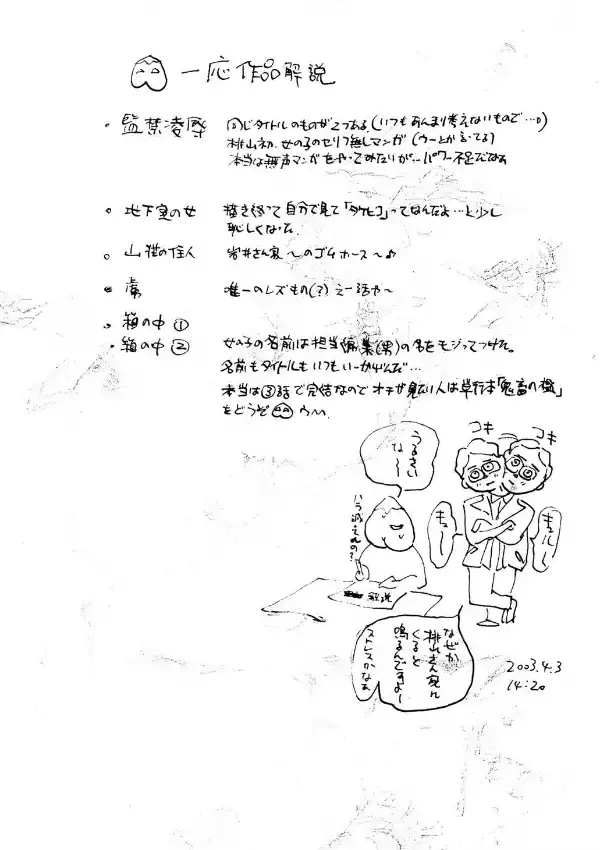 一応作品解説
・監禁凌辱 同じタイトルのものが2つある。(いつもあんまり考えないもので…。)
桃山初、女の子のセリフ無しマンガ(ウーとか言ってる)
本当は無声マンガをやってみたいが…パワー不足だなぁ
地下室の女 描き終って自分で見て「タケヒコ」ってなんだよ…と少し
恥しくなった。
山荘の住人 岩井さん家〜のゴムホース〜♪
・虜 唯一のレズもの(?)えー話や〜
・箱の中①
・箱の中② 女の子の名前は担当編集(男)の名をモジってつけた。
名前もタイトルもいつもいーかげんだ…
本当は③話で完結なのでオチが見たい人は単行本「鬼畜の檻」
をどうぞ
うるさい
な〜
ハラ減ってんの?
解説
コキ
コキ
キュー
キュルー
なぜか
桃山さん家に
くると
鳴るんですよー
ストレスかなぁ
2003.4.3
14:20